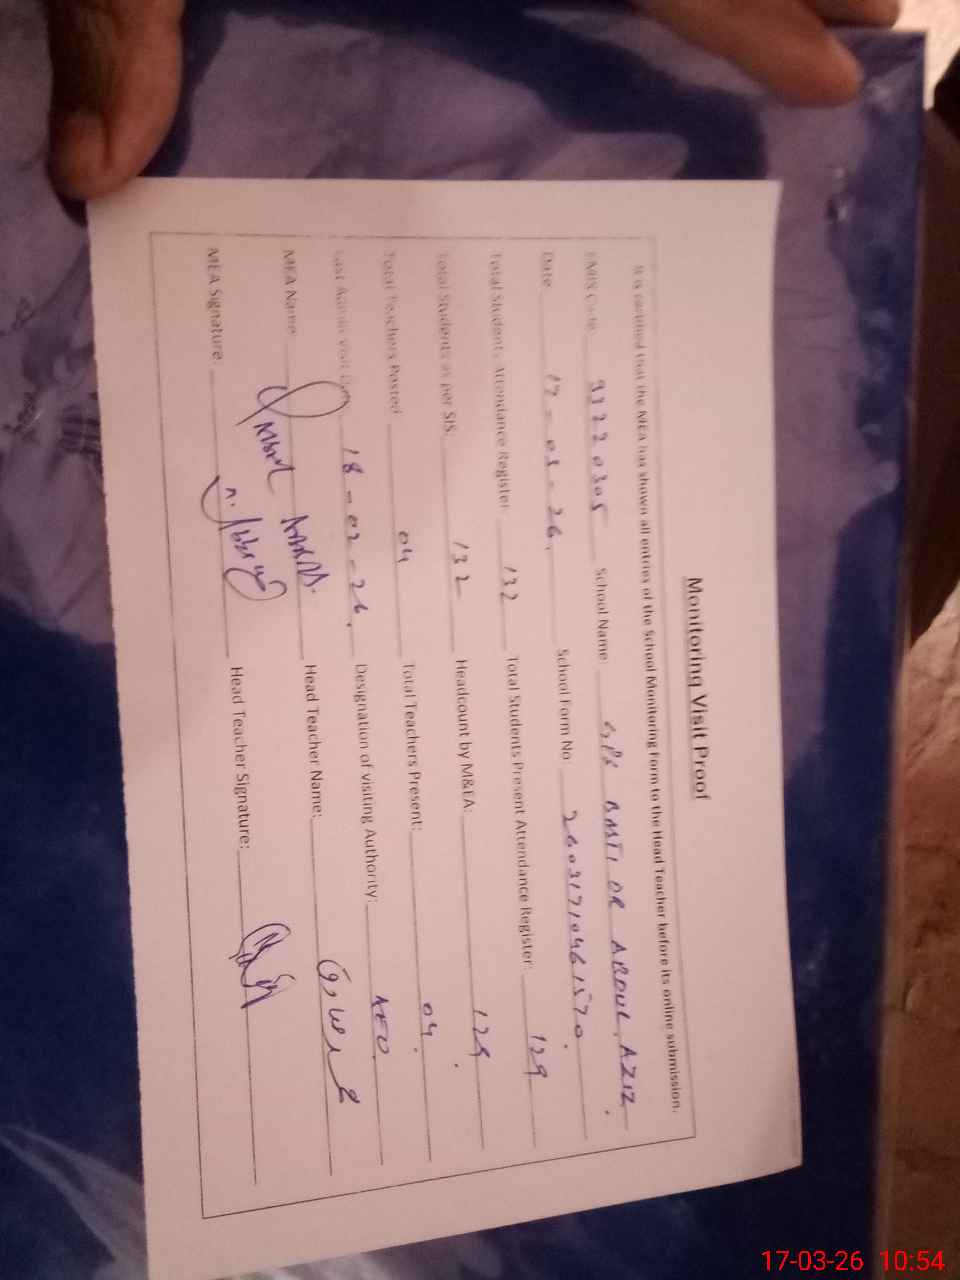 Monitoring Visit Proof
It is certified that the MEA has shown all entries of the School Monitoring Form to the Head Teacher before its online submission.
EMIS Code 33220305 School Name: GPS BASTI DR ABDUL AZIZ.
Date 17-03-26. School Form No: 26031710461570.
Total Students Attendance Register: 132 Total Students Present Attendance Register: 129
Total Students as per SIS: 132 Headcount by M&EA: 129.
Total Teachers Posted 04 Total Teachers Present: 04.
Last Admin Visit Date 18-02-26. Designation of visiting Authority: AEO
MEA Name: Head Teacher Name:
MEA Signature: Head Teacher Signature:
17-03-26 10:54